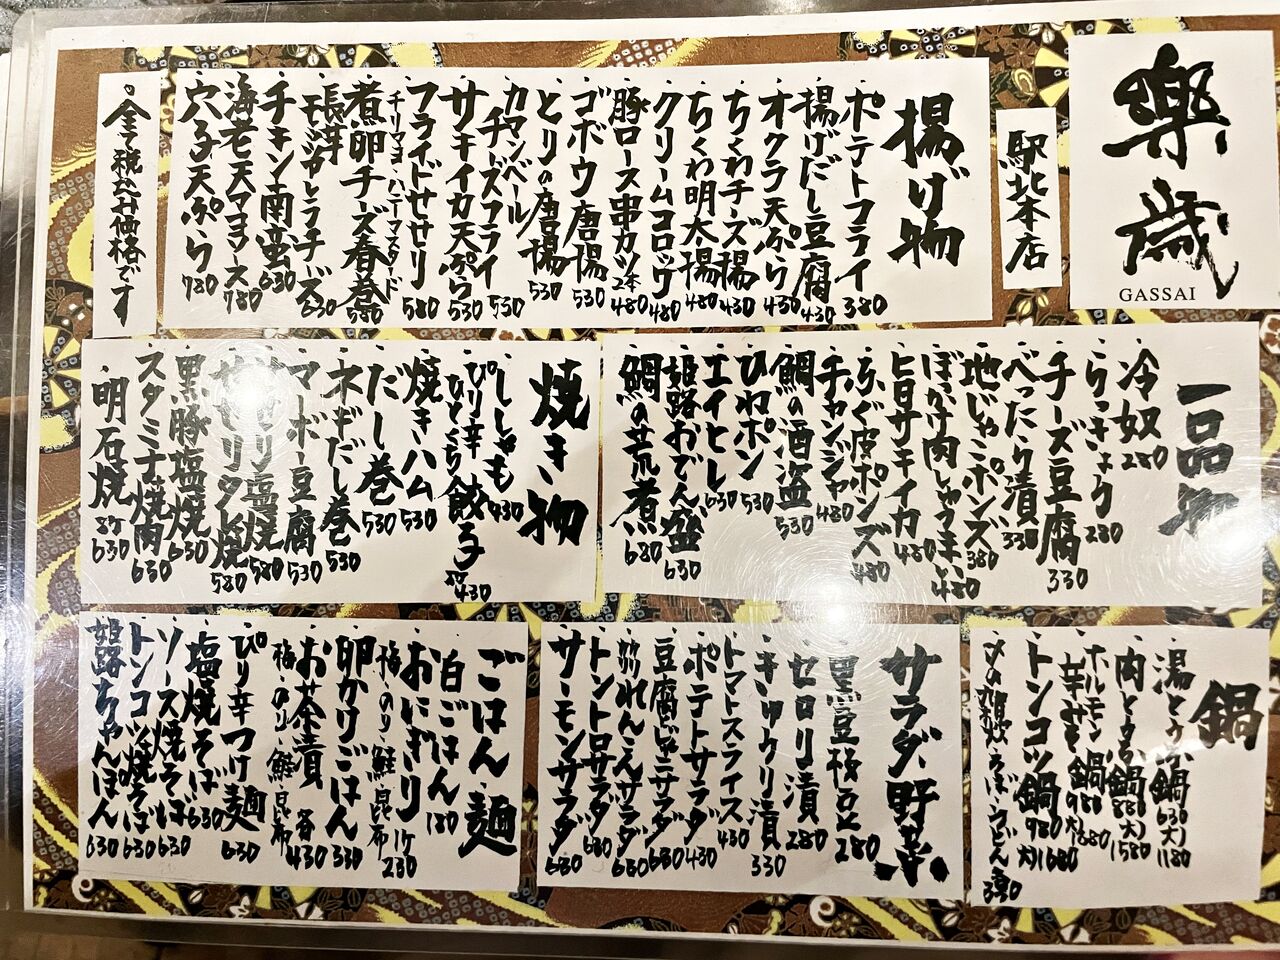 樂歳
GASSAI
駅北本店
揚げ物
ポテトフライ 380
揚げだし豆腐 430
オクラ天ぷら 430
ちくわチーズ揚 430
ちくわ明太揚 480
クリームコロッケ 480
豚ロース串カツ 2本 480
ゴボウ唐揚 530
とりの唐揚 530
カマンベールチーズフライ 530
サキイカ天ぷら 530
フライドせせり 580
チリマヨ・ハニーマスタード
煮卵チーズ春巻 580
長芋モッツァレラチーズ 630
チキン南蛮 630
海老天マヨソース 780
穴子天ぷら 780
全て税込み価格です
一品物
冷奴 280
らっきょう 280
チーズ豆腐 330
べったり漬 330
地じゃこポンズ 380
ぼっかけ肉しゅうまい 480
ヒロサキイカ 480
ふぐ皮ポンズ 480
チャンジャ 480
鯛の酒盗 530
ひねポン 530
エイヒレ 630
姫路おでん盛 630
鯛の荒煮 680
焼き物
ししゃも 430
ぴり辛ひとくち餃子 8ケ 430
焼きハム 530
だし巻 530
ネギだし巻 530
マーボー豆腐 530
せせり塩焼 580
せせりタレ焼 580
黒豚塩焼 630
スタミナ焼肉 630
明石焼 8ケ 630
鍋
湯とうふ鍋 630 大)1180
肉とうふ鍋 880 大)1580
ホルモン辛みそ鍋 980 大)1680
トンコツ鍋 980 大)1680
〆の雑炊・そば・うどん 各330
サラダ、野菜
黒豆枝豆 280
セロリ漬 280
キュウリ漬 330
トマトスライス 430
ポテトサラダ 430
豆腐じゃこサラダ 680
れんこんサラダ 680
トントロサラダ 680
サーモンサラダ 680
ごはん、麺
白ごはん 180
おにぎり 1ケ 230
梅・のり・鮭・昆布
卵かけごはん 330
お茶漬 各430
梅・のり・鮭・昆布
ぴり辛つけ麺 630
塩焼そば 630
ソース焼そば 630
トンコツ焼そば 630
姫路ちゃんぽん 630